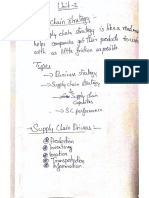 Unit-2
Supply chain Strategy :-
Supply chain strategy is like a roadmap
helps companies get their products to
with as little friction as possible.
Types
→ Business strategy
→ Supply chain strategy
→ Supply chain
capabilities
→ SC performance
→ Supply Chain Drivers :-
Production
Inventory
Location
Transportation
Information